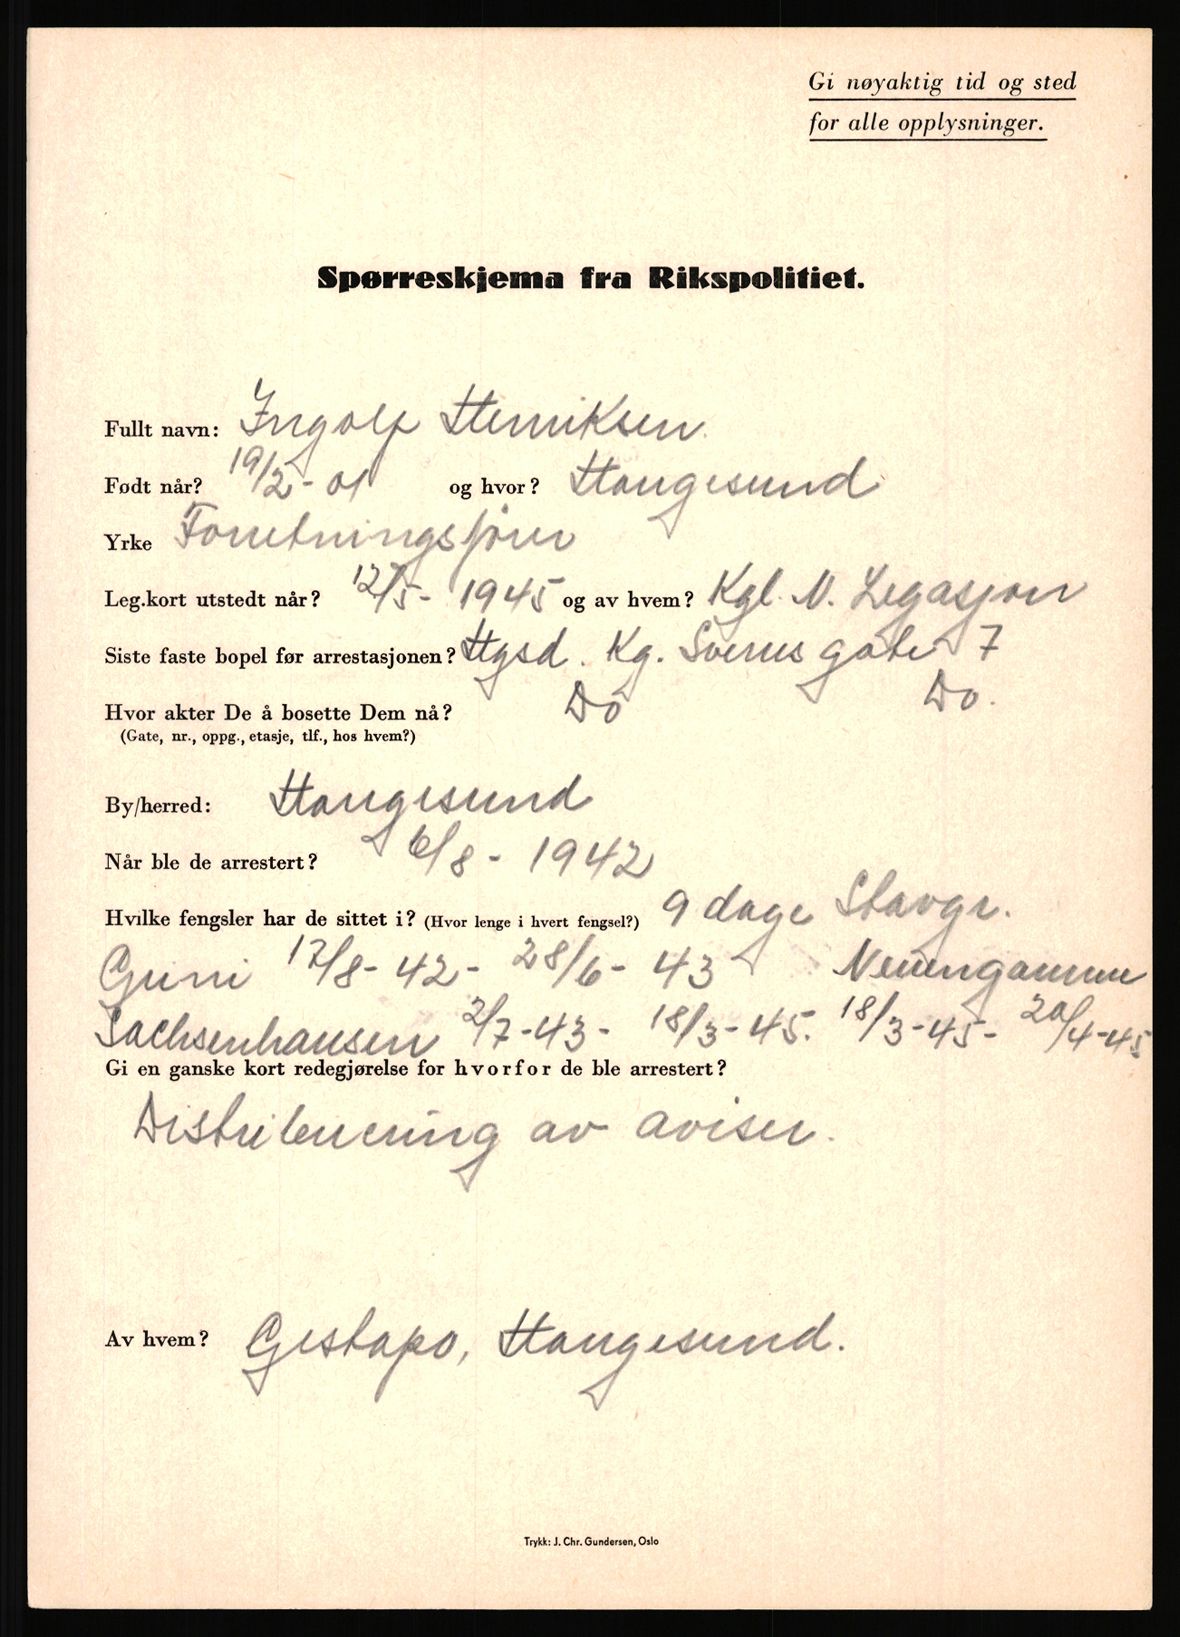 Gi nøyaktig tid og sted
for alle opplysninger.
Spørreskjema fra Rikspolitiet.
Fullt navn: Ingolf Henriksen.
Født når? 19/2 - 01 og hvor? Haugesund
Yrke Forretningsfører
Leg.kort utstedt når? 12/5 - 1945 og av hvem? Kgl. N. Legasjon
Siste faste bopel før arrestasjonen? Hgsd. Kg. Sverres gate 7
Hvor akter De å bosette Dem nå? Do Do.
(Gate, nr., oppg., etasje, tlf., hos hvem?)
By/herred: Haugesund
Når ble de arrestert? 6/8 - 1942
Hvilke fengsler har de sittet i? (Hvor lenge i hvert fengsel?) 9 dage Stavgr.
Grini 17/8 - 42 - 28/6 - 43 Neuengamme
Sachsenhausen 2/7 - 43 - 18/3 - 45. 18/3 - 45 - 20/4 - 45
Gi en ganske kort redegjørelse for hvorfor de ble arrestert?
Distribuering av aviser.
Av hvem? Gestapo, Haugesund.
Trykk: J. Chr. Gundersen, Oslo